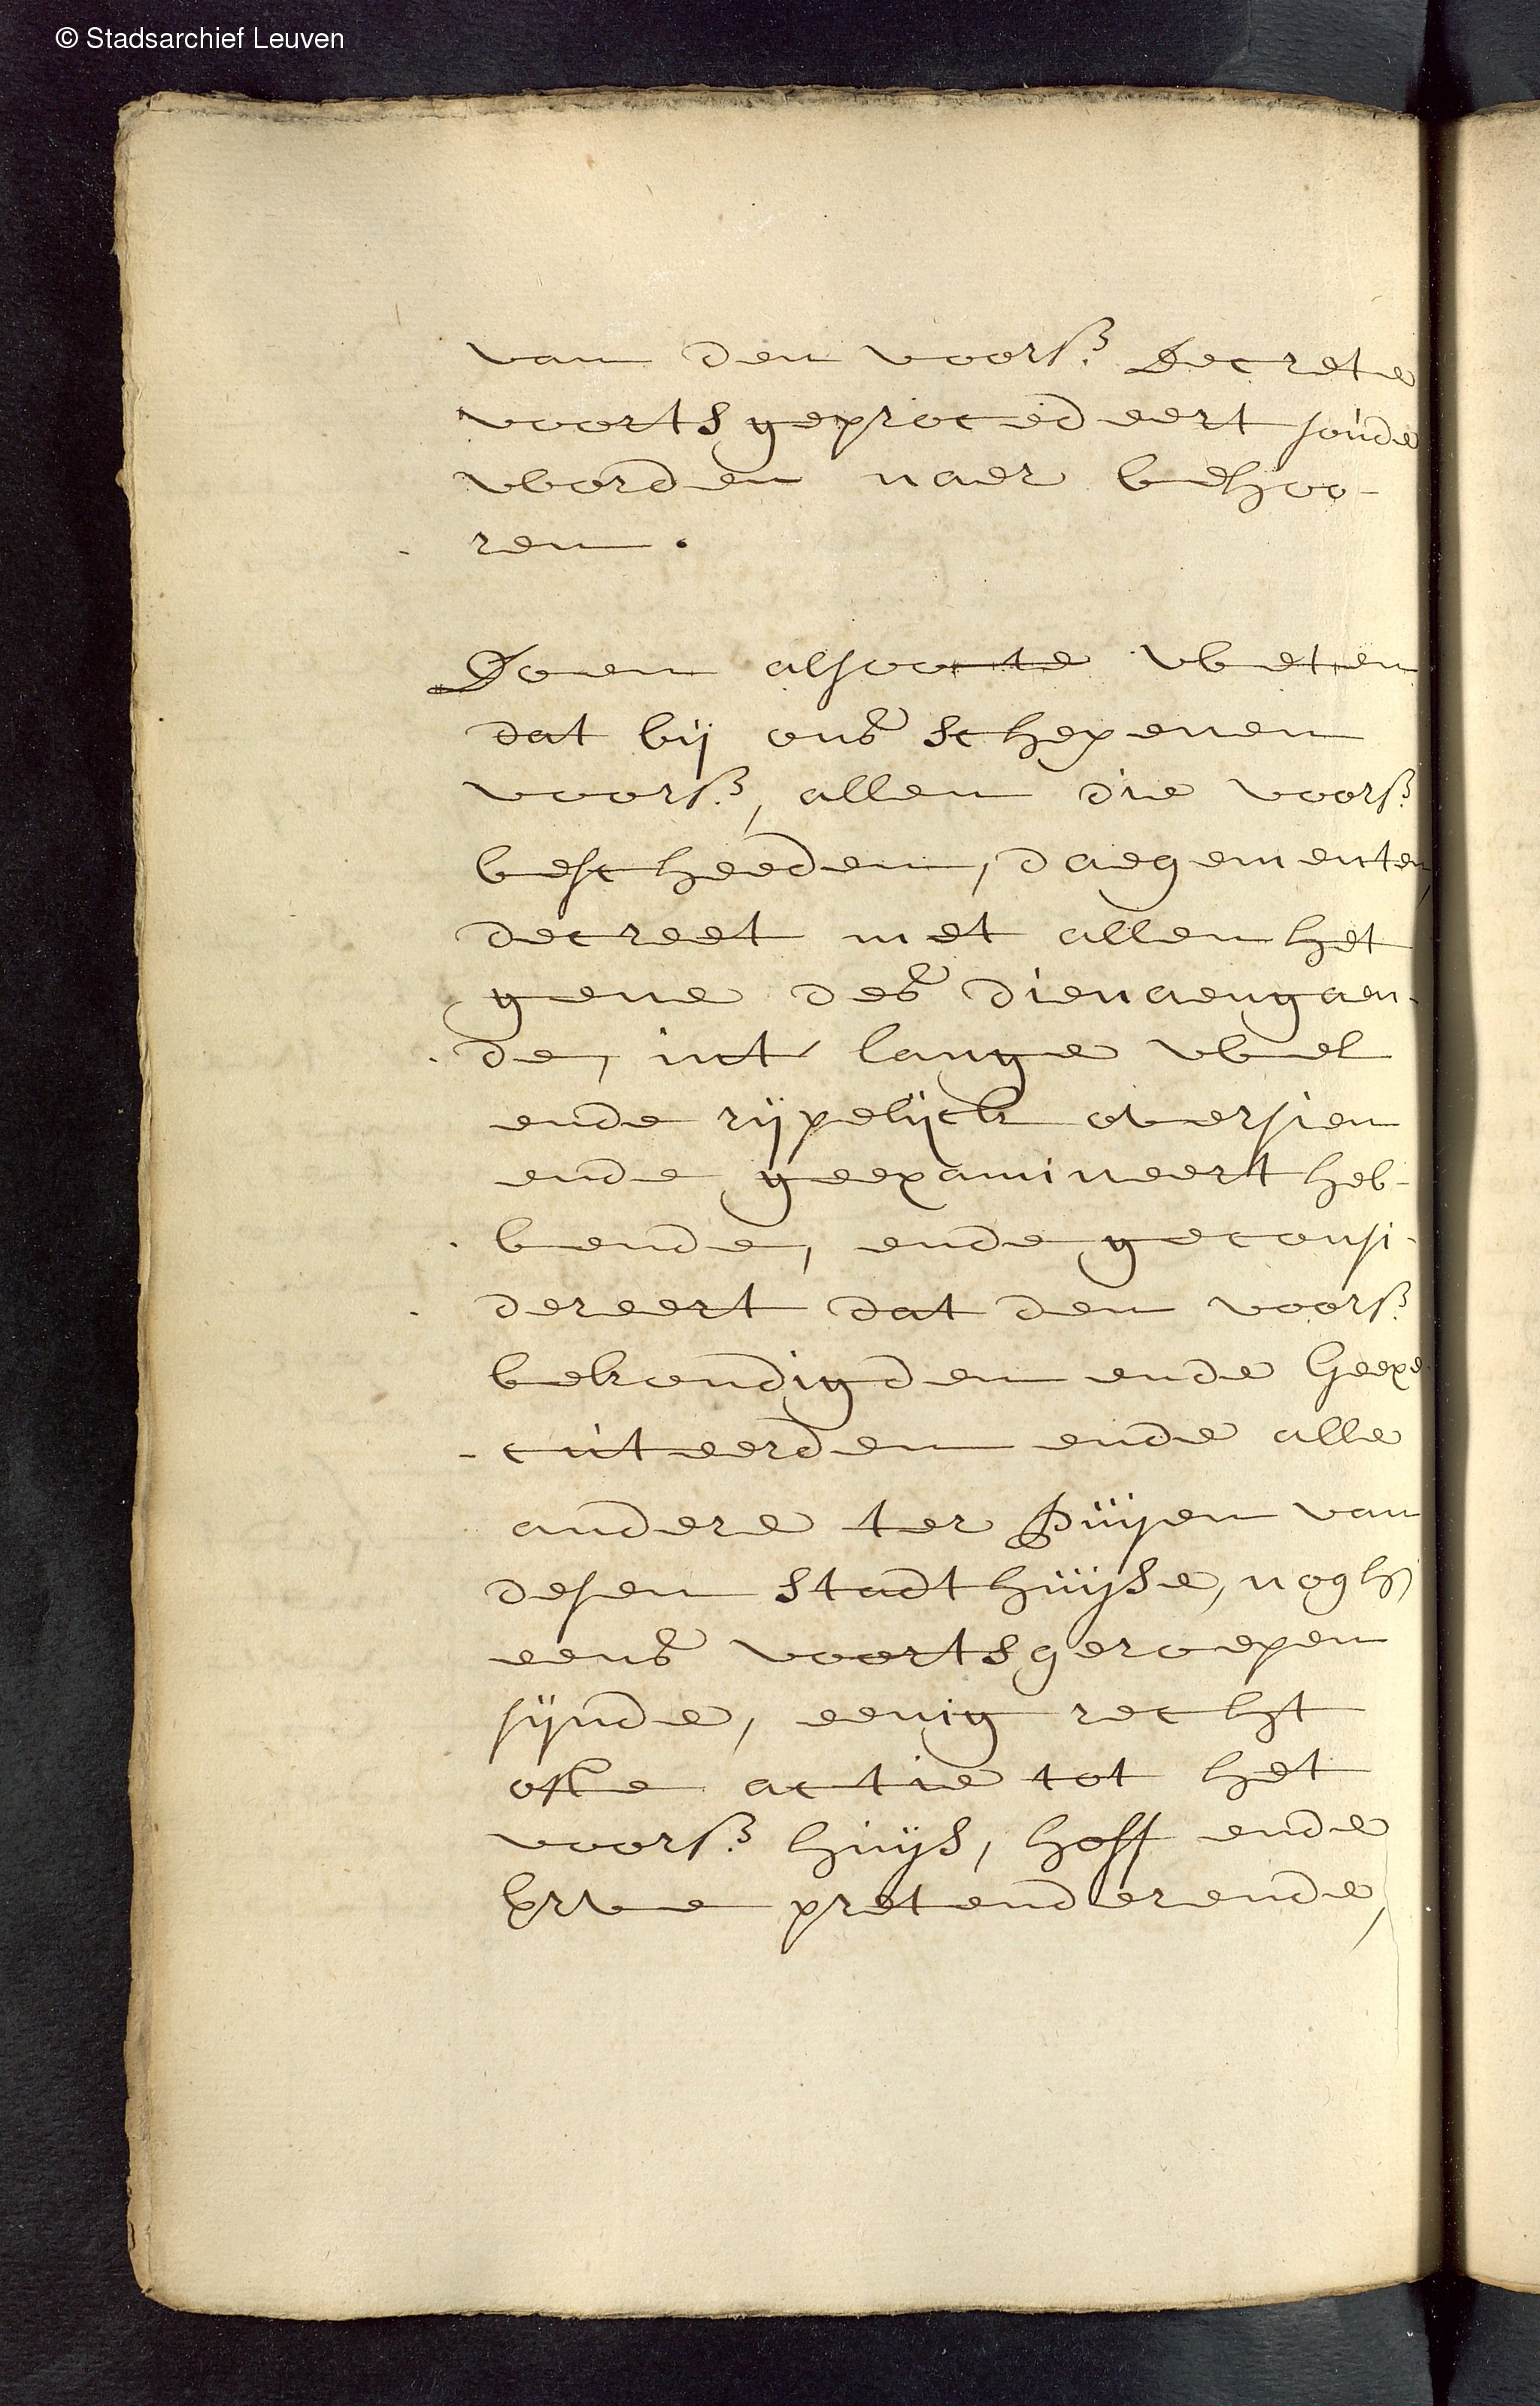 © Stadsarchief Leuven
van den voors. Decrete
voorts geprocedeert soude
worden naer behoo-
-ren.
Doen alsoo te weten
dat bij ons schepenen
voors., allen die voors.
bescheeden, daegementen,
decreet met allen het
gene des dienaengaen-
-de, int lange wel
ende rijpelijck oversien
ende geexamineert heb-
-bende, ende geconsi-
-dereert dat den voors.
bekondigden ende Geexe-
-cuteerden ende alle
andere ter Puijen van
desen stadthuijse, nogh
eens voorts geroepen
sijnde, eenig recht
ofte actie tot het
voors. huijs, hoff ende
Erve pretenderende,